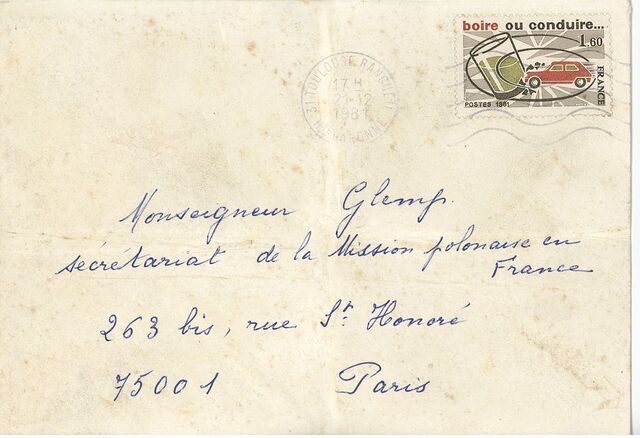 boire ou conduire...
1,60
FRANCE
POSTES 1981
31 TOULOUSE RANGUEIL
17 H
2-12
1981
HTE GARONNE
Monseigneur Glemp.
secrétariat de la Mission polonaise en
France
263 bis, rue St. Honoré
75001 Paris